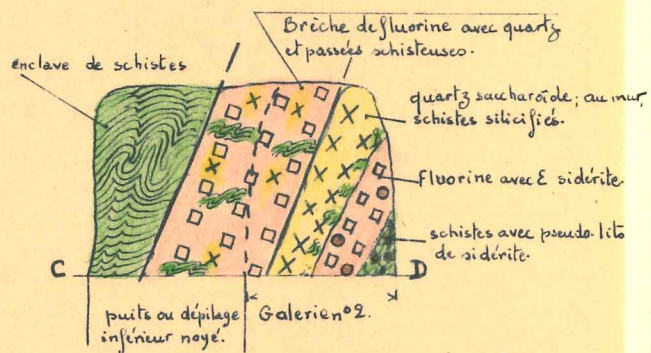 Brèche de fluorine avec quartz
et passées schisteuses.
enclave de schistes
quartz saccharoïde; au mur,
schistes silicifiés.
Fluorine avec Ɛ sidérite.
schistes avec pseudo-lits
de sidérite.
C
D
puits ou dépilage
inférieur noyé.
Galerie n°2.